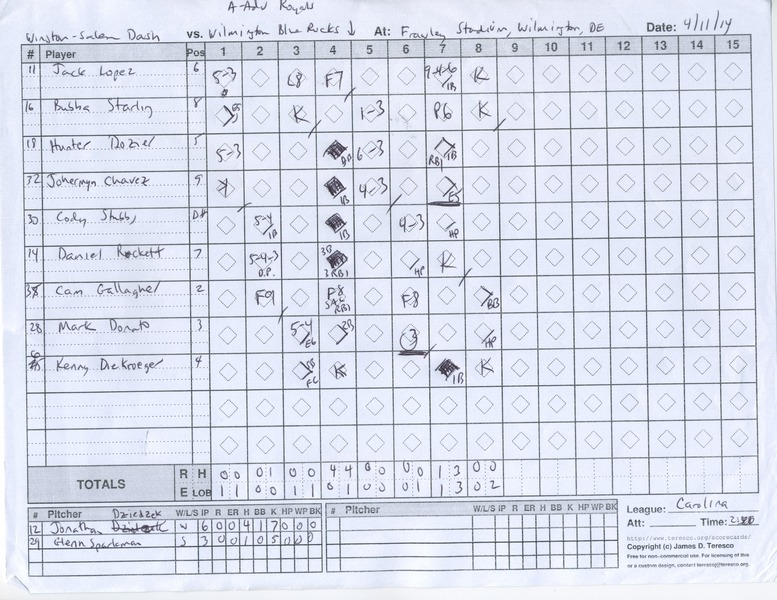 A-Adv Royals
Winston-Salem Dash vs. Wilmington Blue Rocks ↓ At: Frawley Stadium, Wilmington, DE Date: 4/11/14
# Player Pos 1 2 3 4 5 6 7 8 9 10 11 12 13 14 15
11 Jack Lopez 6 5-3 L8 F7 9-4-6 1B K
16 Bubba Starling 8 K 1-3 P6 K
18 Hunter Dozier 5 5-3 6-3 RBI 1B
32 Johermyn Chavez 9 1B 4-3 E5
30 Cody Stubby DH 5-4 1B 1B 4-3 HP
14 Daniel Rockett 7 5-4-3 D.P. 3B 3RBI HP K
Cam Gallagher 2 F9 F8 SAC RBI F8 BB
28 Mark Donato 3 5-4 E6 2B 3 HP
Kenny Diekroeger 4 FC K 1B K
TOTALS R H 0 0 0 1 0 0 4 4 0 0 0 0 1 3 0 0
E LOB 1 1 0 0 1 1 0 1 0 0 0 1 1 3 0 2
# Pitcher Dziedzic W/L/S IP R ER H BB K HP WP BK # Pitcher W/L/S IP R ER H BB K HP WP BK
12 Jonathan W 6 0 0 4 1 7 0 0 0
29 Glenn Sparkman S 3 0 0 1 0 5 0 0 0
League: Carolina
Att: Time:
http://www.teresco.org/scorecards/
Copyright (c) James D. Teresco
Free for non-commercial use. For licensing of this
or a custom design, contact terescoj@teresco.org.